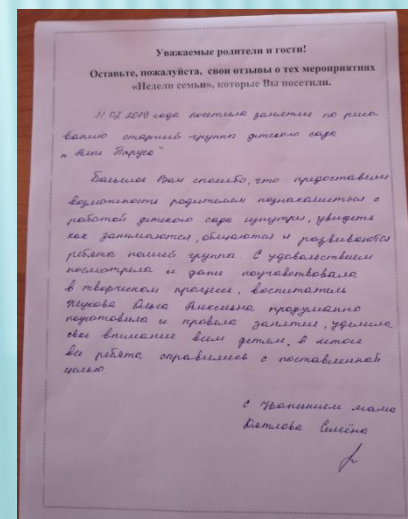 Уважаемые родители и гости!
Оставьте, пожалуйста, свои отзывы о тех мероприятиях
«Недели семьи», которые Вы посетили.
11.02.2019 года посетила занятия по рисо
ванию старшей группы детского сада
"Алые Паруса"
Большое Вам спасибо, что предоставили
возможность родителям познакомиться с
работой детского сада изнутри, увидеть
как занимаются, общаются и развиваются
ребята нашей группы. С удовольствием
посмотрела и даже поучаствовала
в творческом процессе, воспитатель
Ольга Алексеевна продуманно
подготовила и провела занятие, уделила
свое внимание всем детям, в итоге
все ребята справились с поставленной
целью
с уважением мама
Семёна